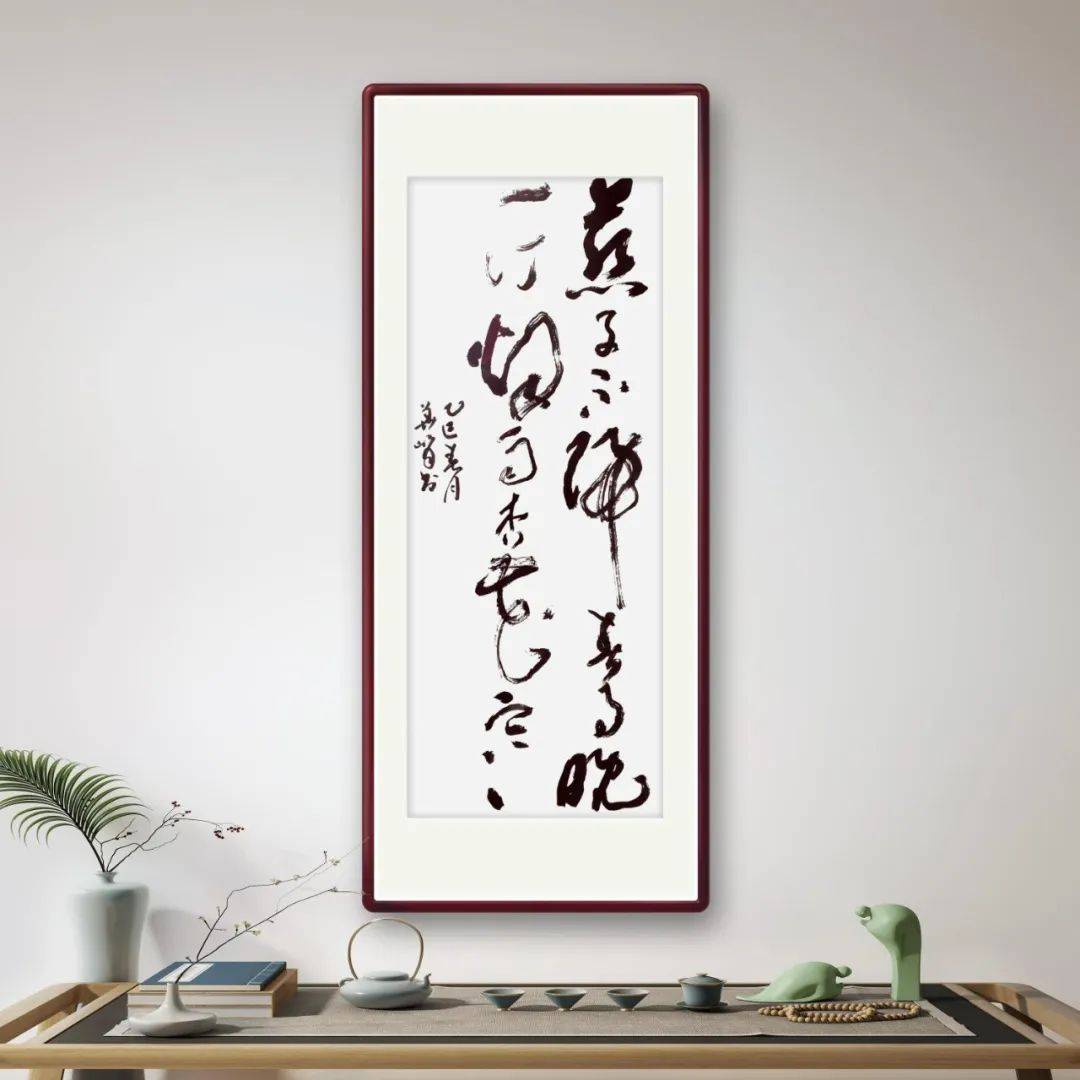 燕子不歸春事晚
一汀烟雨杏花寒
乙巳春月
书